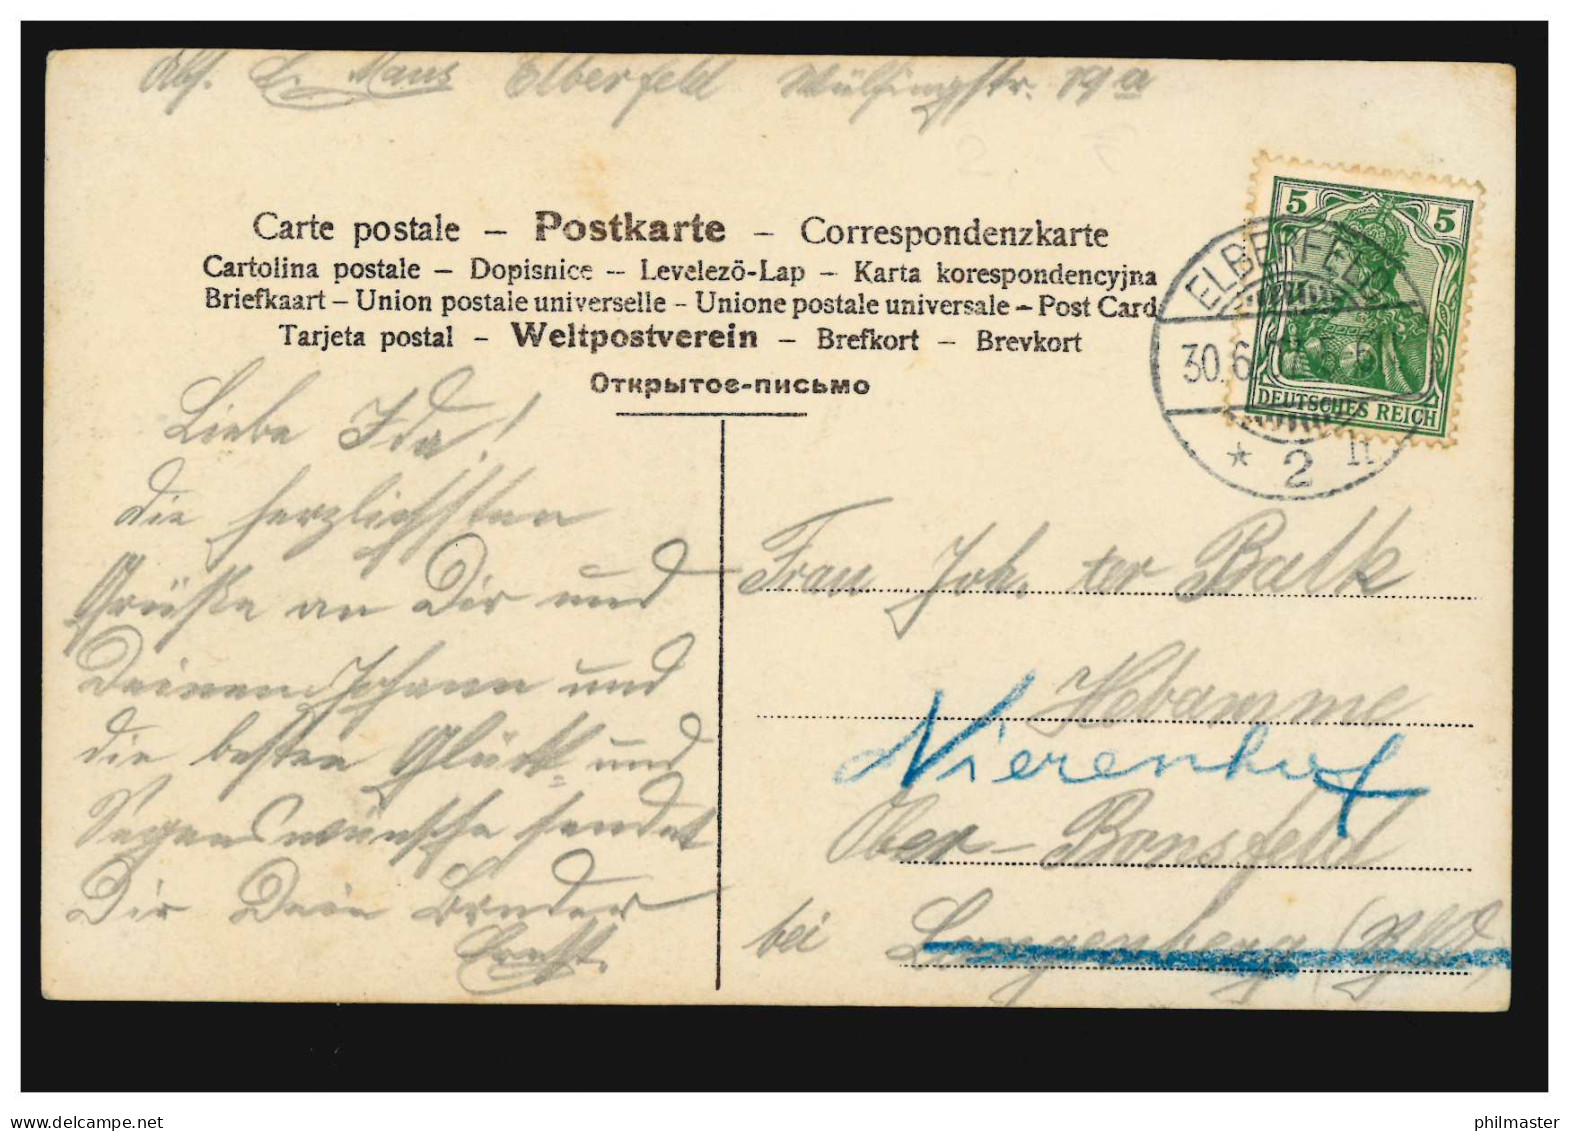 Abs. E. Maus Elberfeld Wülfingstr. 19 a
Carte postale – Postkarte – Correspondenzkarte
Cartolina postale – Dopisnice – Levelezö-Lap – Karta korespondencyjna
Briefkaart – Union postale universelle – Unione postale universale – Post Card
Tarjeta postal – Weltpostverein – Brefkort – Brevkort
Открытое-письмо
5 5
DEUTSCHES REICH
ELBERFELD
30.6.
* 2 n
Liebe Ida!
die herzlichsten
Grüße an Dir und
Deinem Johann und
die besten Glück- und
Segenswünsche sendet
Dir Dein Bruder
Ernst.
Frau Joh. ter Balk
Hebamme
Nierenhof
Ober-Bonsfeld
bei Langenberg (Rhld)
www.delcampe.net
philmaster